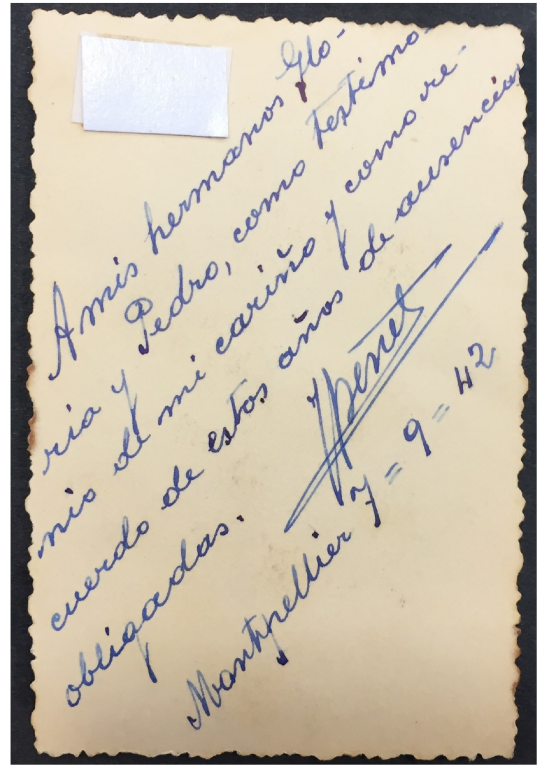 A mis hermanos Glo-
ria y Pedro, como testimo-
nio de mi cariño y como re-
cuerdo de estos años de ausencias
obligadas.
Montpellier 7=9=42